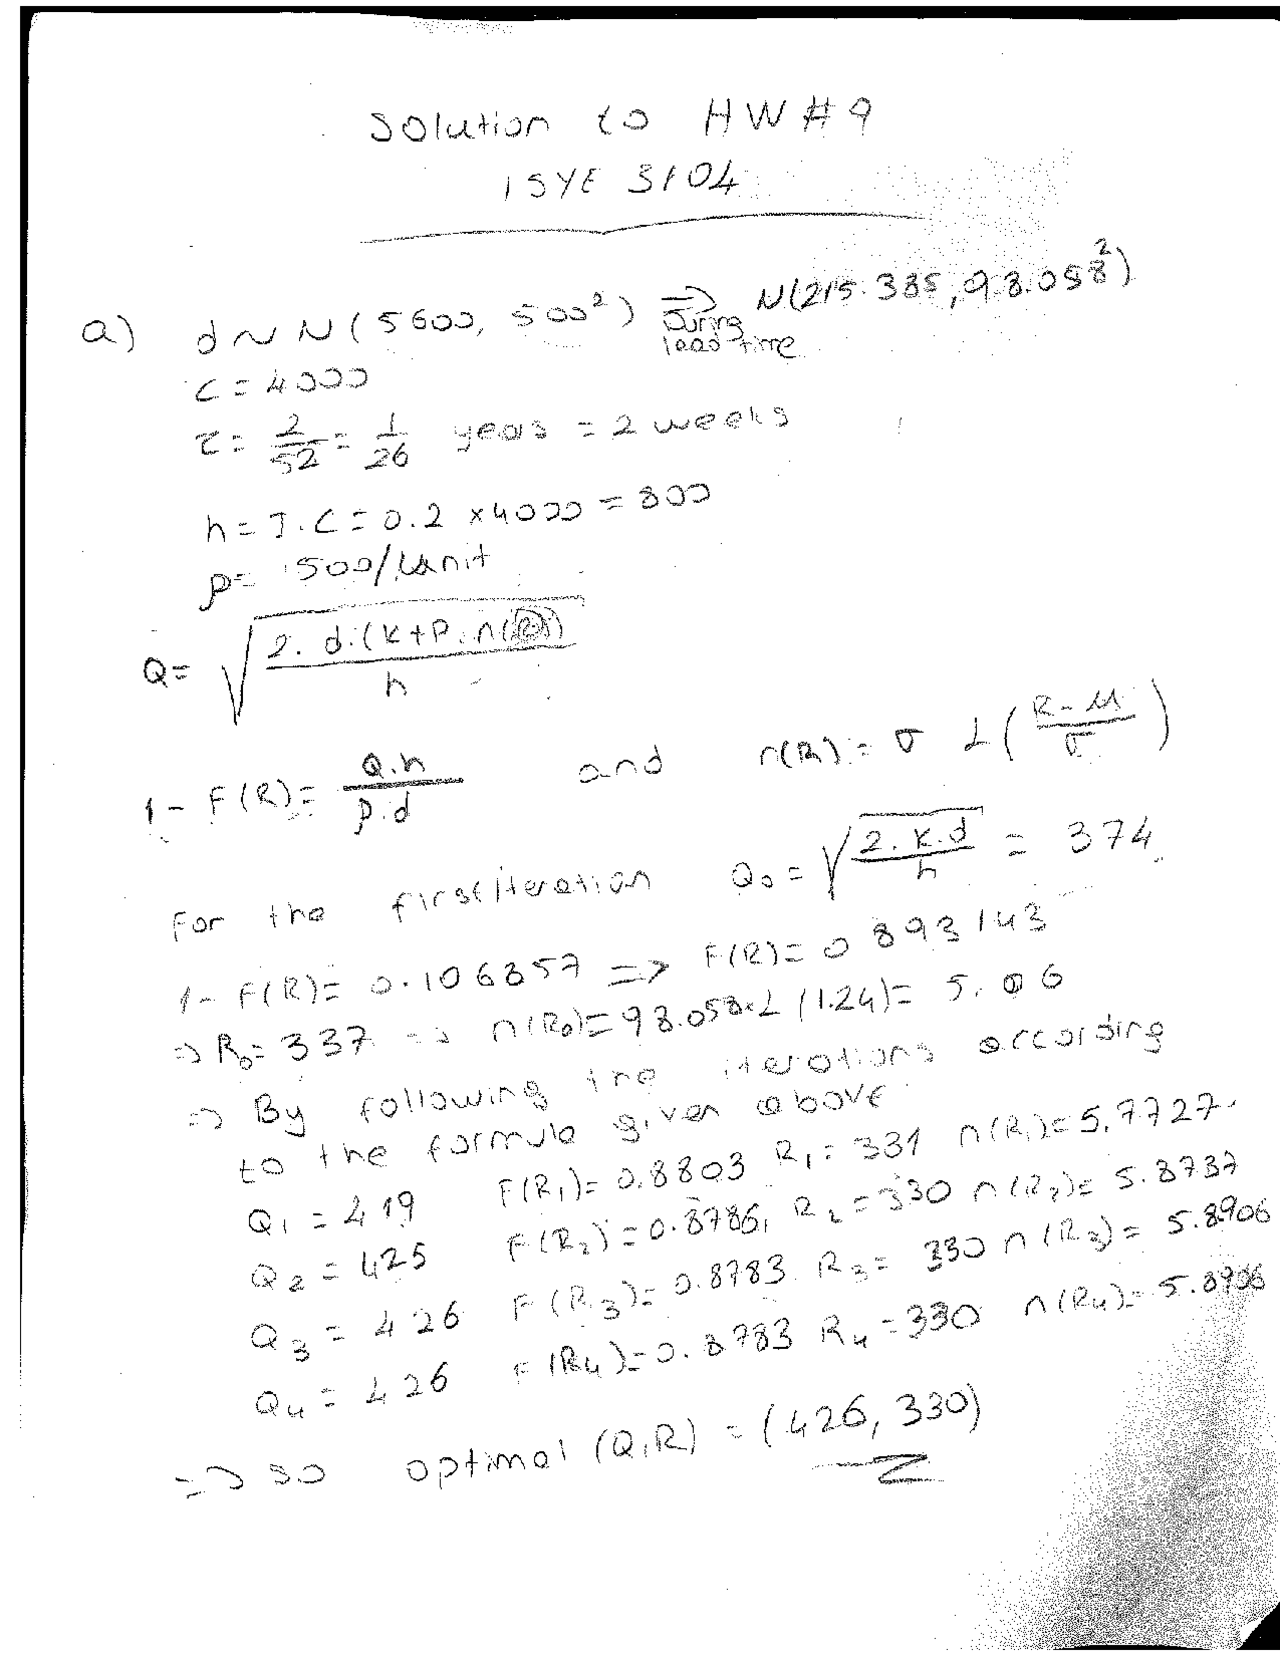 Solution to HW#9
ISYE 3104
a) d~N(5600, 500²) ⇒ N(215.385, 98.058²)
During lead time
C = 4000
τ = 2/52 = 1/26 years = 2 weeks
h = I.C = 0.2 x 4000 = 800
p = 500/unit
Q = √(2. d.(K+P.n(R))/h)
1 - F(R) = Q.h/p.d and n(R) = σ L((R-μ)/σ)
For the first iteration Q₀ = √(2.K.d/h) = 374
1 - F(R) = 0.106857 => F(R) = 0.893143
⇒ R₀ = 337 ⇒ n(R₀) = 98.058.L(1.24) = 5.06
⇒ By following the iterations according
to the formula given above
Q₁ = 419 F(R₁) = 0.8803 R₁ = 331 n(R₁) = 5.7727
Q₂ = 425 F(R₂) = 0.8786, R₂ = 330 n(R₂) = 5.8737
Q₃ = 426 F(R₃) = 0.8783 R₃ = 330 n(R₃) = 5.8906
Q₄ = 426 F(R₄) = 0.8783 R₄ = 330 n(R₄) = 5.8906
⇒ so optimal (Q,R) = (426, 330)